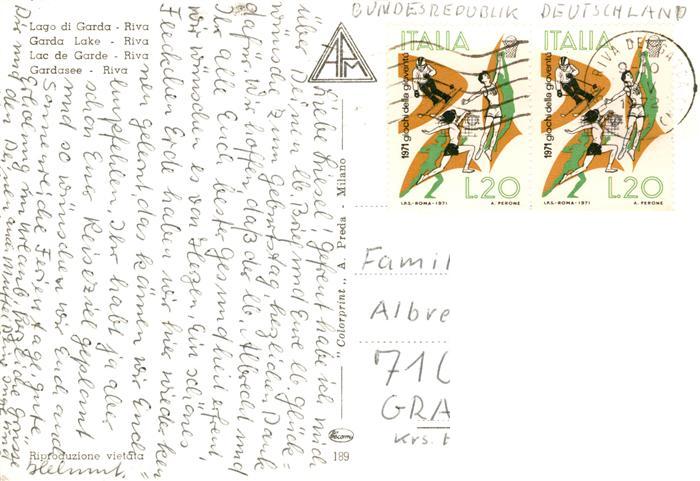 Lago di Garda - Riva
Garda Lake - Riva
Lac de Garde - Riva
Gardasee - Riva
BUNDESREPUBLIK DEUTSCHLAND
ITALIA
1971 giochi della gioventù
L.20
I.P.S.-ROMA-1971
A. PERONE
ITALIA
1971 giochi della gioventù
L.20
I.P.S.-ROMA-1971
A. PERONE
RIVA DEL GA
Famil
Albre
710
GRA
Krs. H
"Colorprint" A. Preda - Milano
189
Riproduzione vietata
Gefreut habe ich mich
über lb Brief und Eure lb Glück=
wünsche zum Geburtstag herzlichen Dank
dafür. Wir hoffen, daß der lb. Albrecht und
Ihr alle Euch bester Gesundheit erfreut,
wir wünschen es von Herzen. Ein schönes
Fleckchen Erde haben wir hier wieder ken
nen gelernt, das können wir Euch
empfehlen, Ihr habt ja aber
schon Euer Reiseziel geplant
und so wünschen wir Euch auch
Sonne, die Ferientage, gute
Erholung im Urlaub herzliche Grüße
Dir und den Deinen
Helmut.